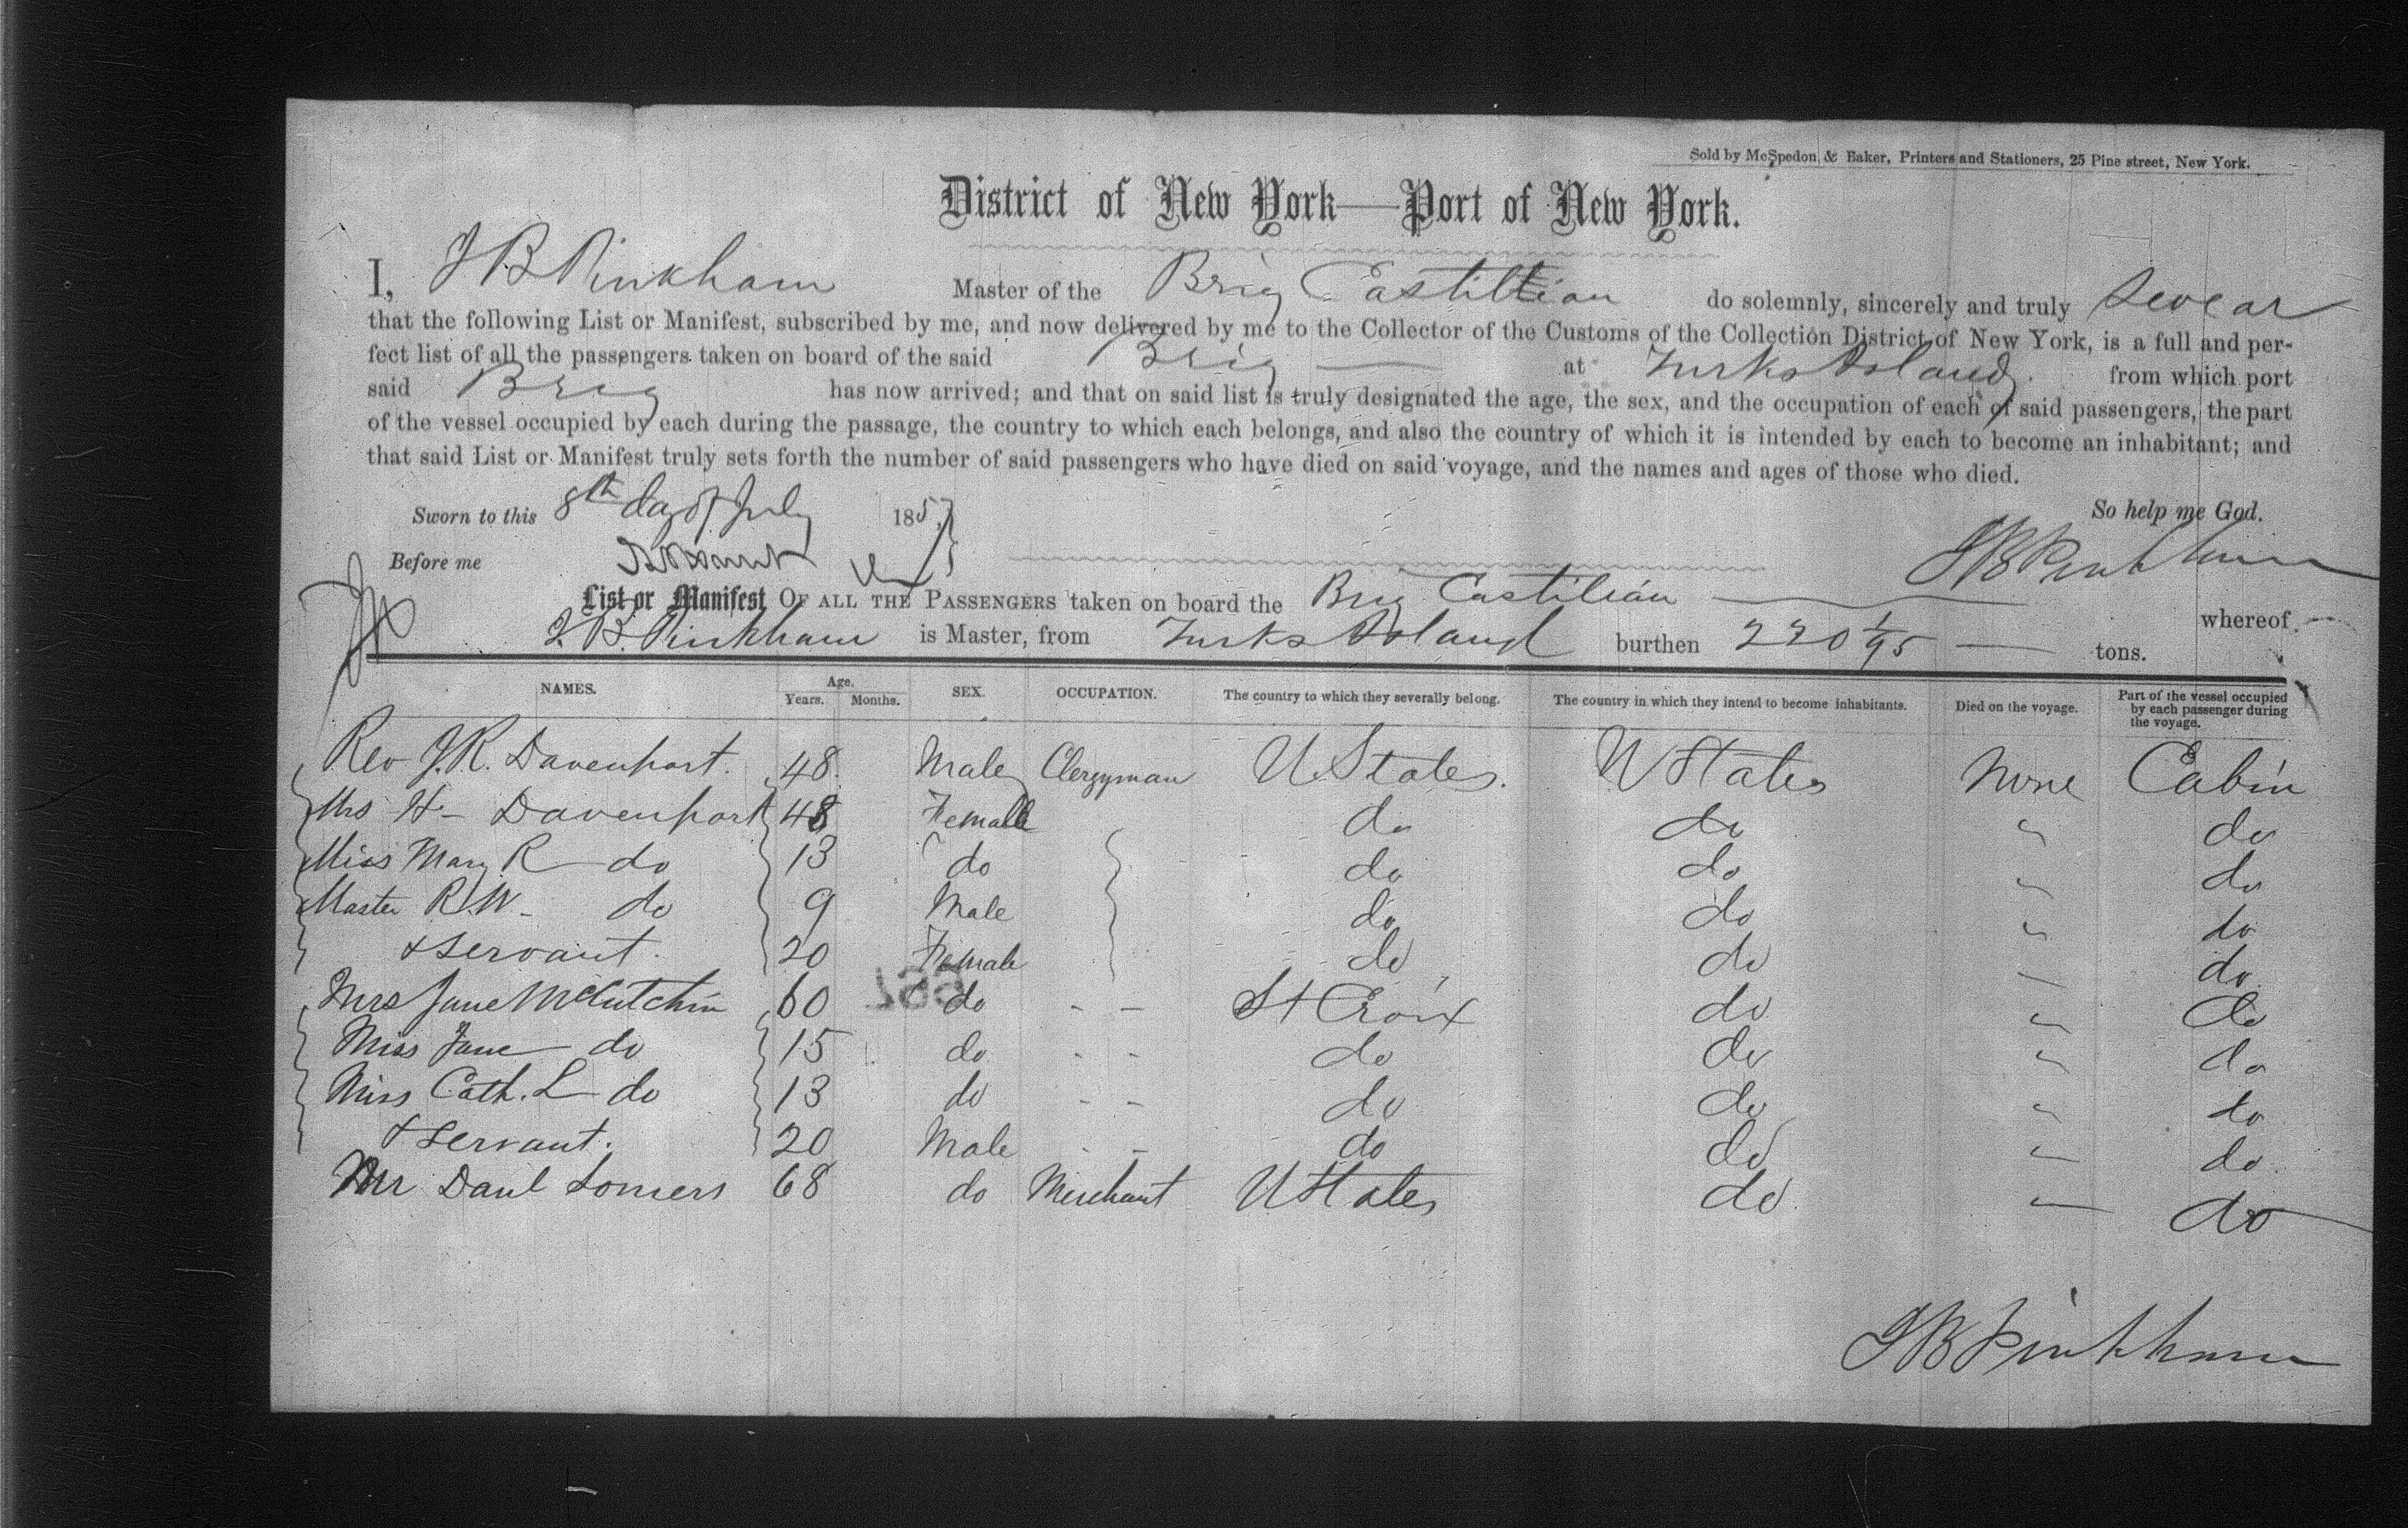 Sold by McSpedon & Baker, Printers and Stationers, 25 Pine street, New York.
District of New York—Port of New York.
I, J B Pinkham Master of the Brig Castillian do solemnly, sincerely and truly swear
that the following List or Manifest, subscribed by me, and now delivered by me to the Collector of the Customs of the Collection District of New York, is a full and per-
fect list of all the passengers taken on board of the said Brig — at Turks Island from which port
said Brig has now arrived; and that on said list is truly designated the age, the sex, and the occupation of each of said passengers, the part
of the vessel occupied by each during the passage, the country to which each belongs, and also the country of which it is intended by each to become an inhabitant; and
that said List or Manifest truly sets forth the number of said passengers who have died on said voyage, and the names and ages of those who died.
Sworn to this 8th day of July 185 So help me God.
Before me J B Pinkham
List or Manifest OF ALL THE PASSENGERS taken on board the Brig Castilian — whereof
J. B. Pinkham is Master, from Turks Island burthen 220 1/95 — tons.
NAMES. Age. Years. Months. SEX. OCCUPATION. The country to which they severally belong. The country in which they intend to become inhabitants. Died on the voyage. Part of the vessel occupied by each passenger during the voyage.
Rev J. R. Davenport. 48. Male Clergyman U States. U States None Cabin
Mrs H - Davenport 48 Female do do " do
Miss Mary R do 13 do do do " do
Master R. W. - do 9 Male do do " do
& servant. 20 Female do do " do
Mrs Jane McCutchin 60 do - - St Croix do " do
Miss Jane do 15 do - - do do " do
Miss Cath. L do 13 do - - do do " do
& servant. 20 Male - - do do " do
Mr Danl Somers 68 do Merchant U States do " do
J B Pinkham